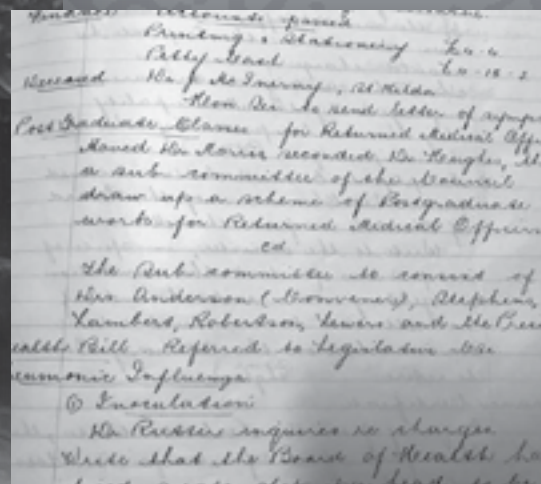 Accounts passed
Printing & Stationery £4.4
Petty Cash £4-18-2
Deceased Dr J McInerny, St Kilda
Hon Sec to send letter of symp
Post Graduate Classes for Returned Medical Offi
Moved Dr Morris seconded Dr Hughes, th
a sub committee of the Council
draw up a scheme of Postgraduate
work for Returned Medical Officer
cd
The Sub committee to consist of
Drs Anderson (Convener), Stephens,
Lambert, Robertson, Sewers and the Pres
ealth Bill Referred to Legislative
eumonic Influenza
① Inoculation
Dr Rossier inquires re charges
Write that the Board of Health ha